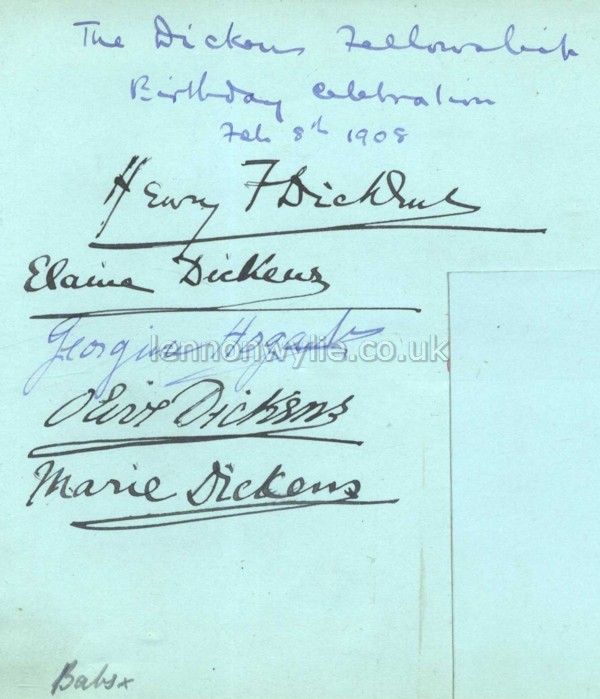 The Dickens Fellowship
Birthday Celebration
Feb 8th 1908
Henry F Dickens
Elaine Dickens
Georgina Hogarth
lennonwylie.co.uk
Olive Dickens
Marie Dickens
Babs x